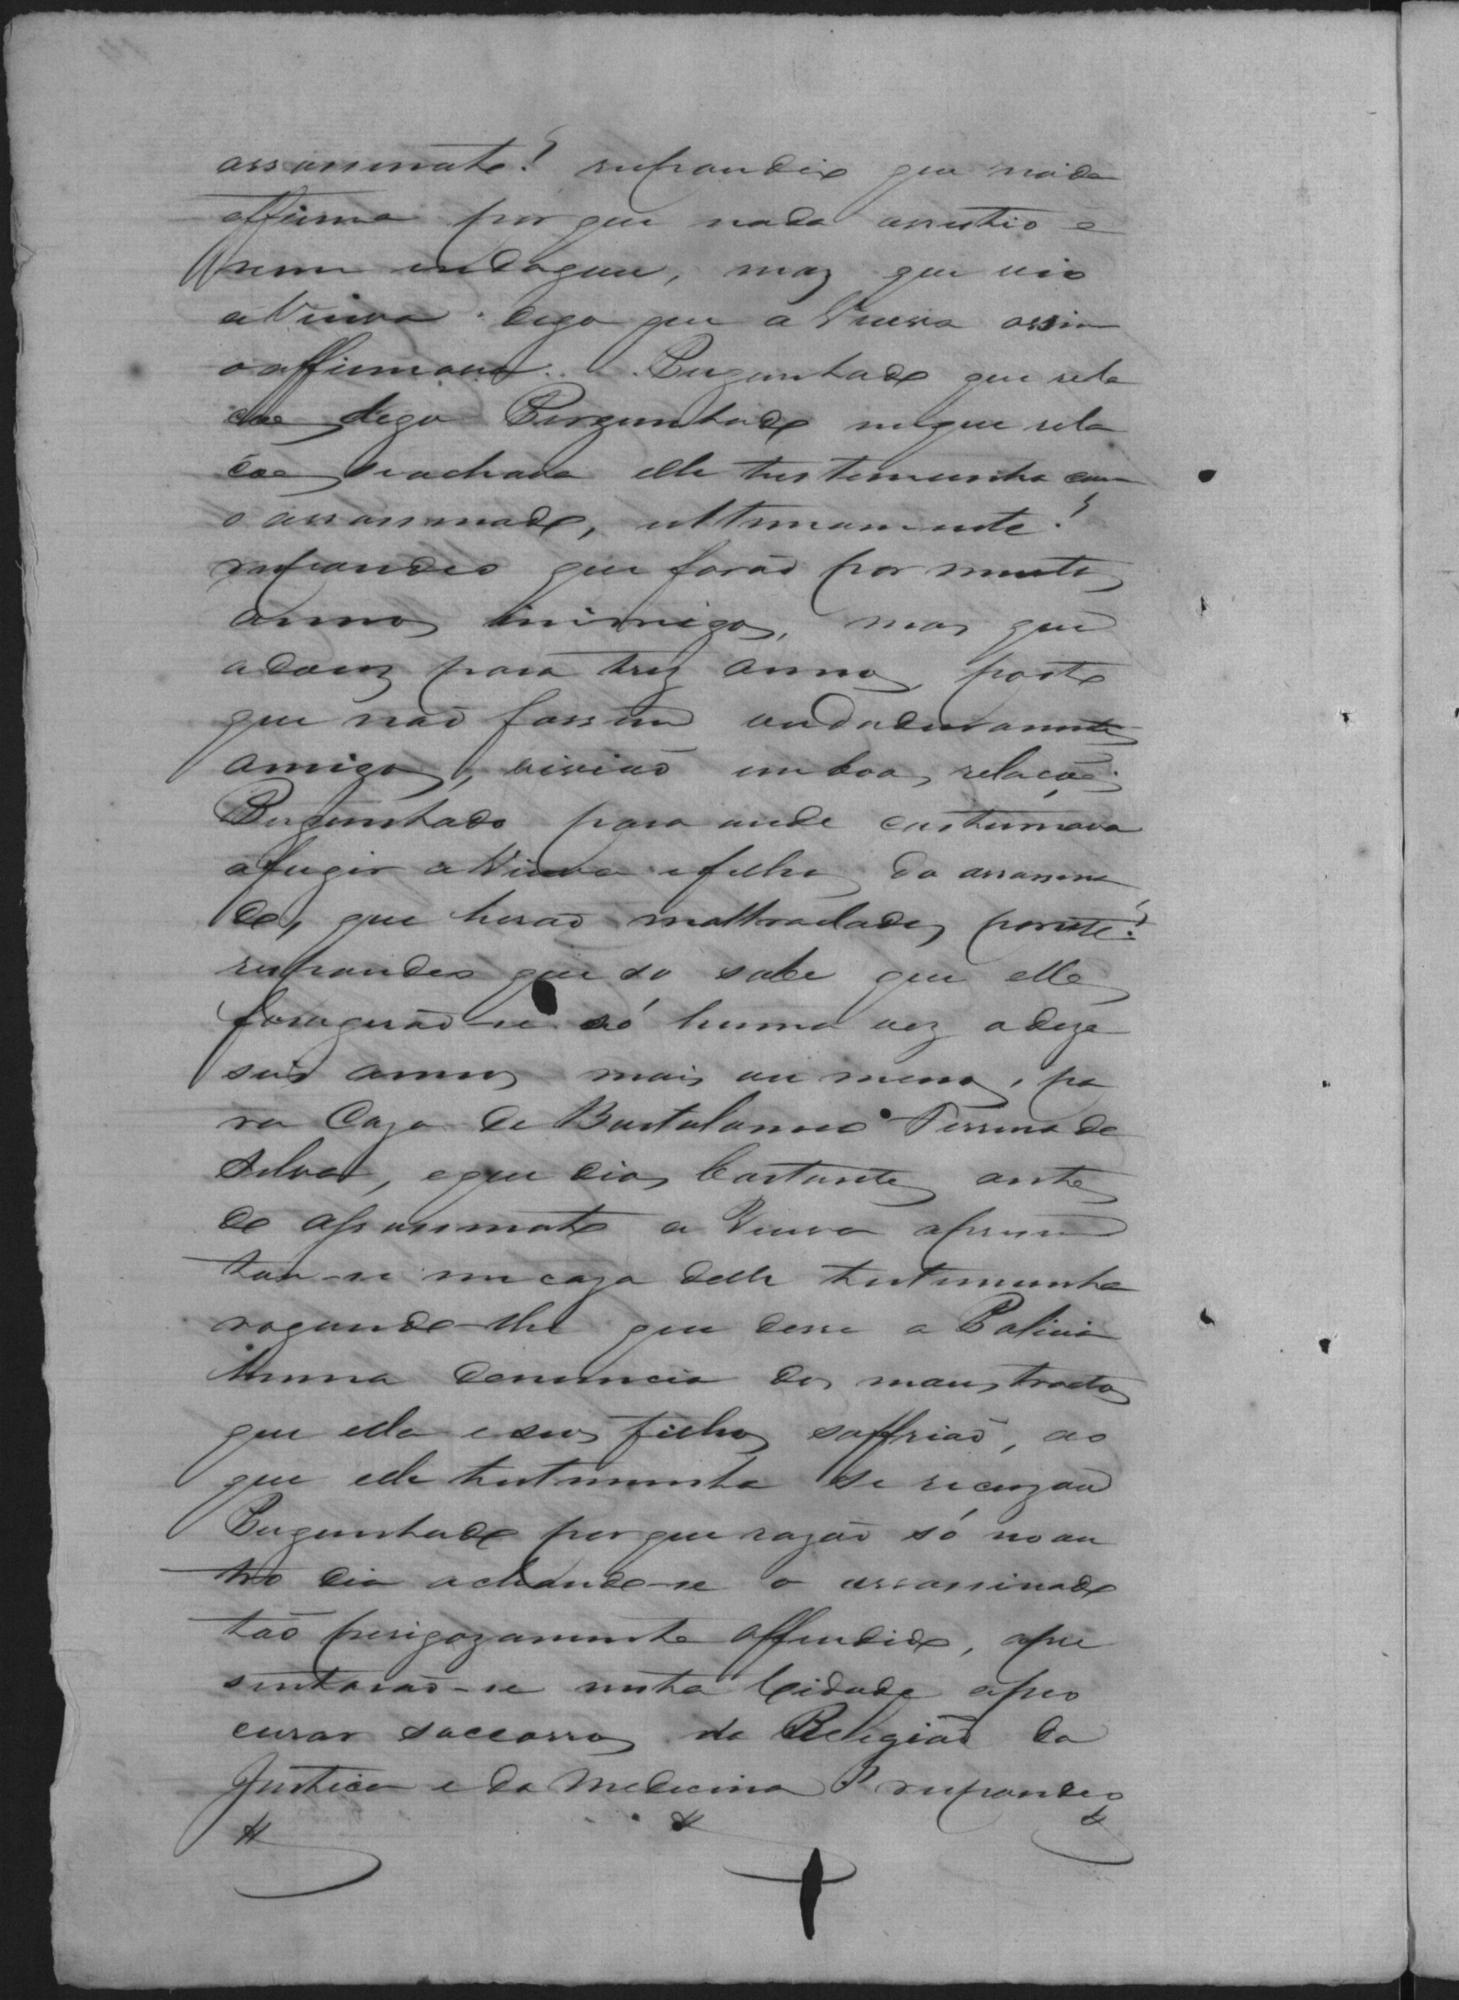 assassinato? respondeo que nada
affirma por que nada assistio e
nem indagou, maz que vio
a Viuva digo que a Viuva assim
o affirmava. Perguntado que rela
ção digo Perguntado em que rela
ção se achava elle testemunha com
o assassinado, ultimamente?
respondeo que forão por muitos
annos inimigos, mas que
a dous para trez annos, posto
que não fossem verdadeiramente
amigos, viviaõ em boas relaçoẽs.
Perguntado para onde custumava
a fugir a Viuva e filhos do assassina
do, que heraõ maltratados por este?
respondeo que so sabe que elles
foragiraõ-se só huma vez a deze
seis annos mais ou menos, pa
ra Caza de Bartolomeo Pereira da
Silva, e que dias bastantes antes
do assassinato a Viuva apresen
tou-se em caza delle testemunha
rogando-lhe que desse a Policia
huma denuncia dos maus tractos
que ella e seus filhos soffriaõ, ao
que elle testemunha se recuzou
Perguntado por que razaõ só no ou
tro dia achando-se o assassinado
taõ perigozamente offendido, apre
sentaraõ-se nesta Cidade a pro
curar soccorros da Religiaõ da
Justiça e da Medicina? respondeo